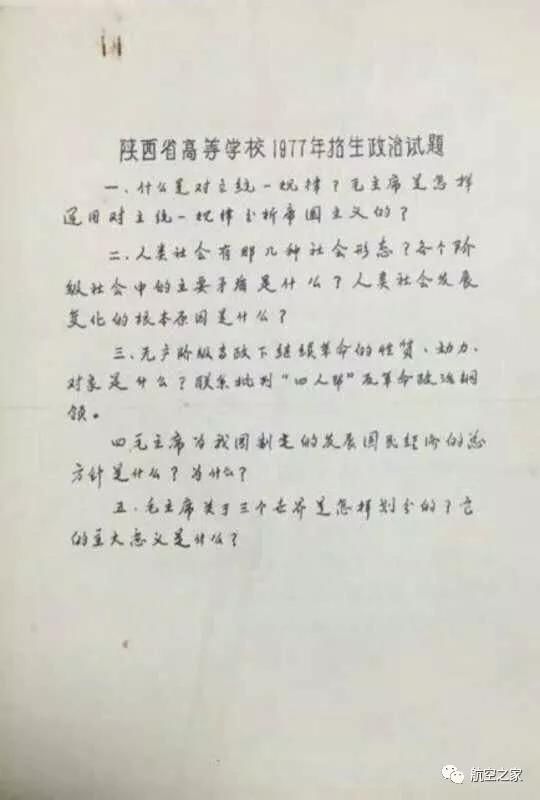 陕西省高等学校1977年招生政治试题
一、什么是对立统一规律？毛主席是怎样
运用对立统一规律分析帝国主义的？
二、人类社会有那几种社会形态？各个阶
级社会中的主要矛盾是什么？人类社会发展
变化的根本原因是什么？
三、无产阶级专政下继续革命的性质、动力、
对象是什么？联系批判“四人帮”反革命政治纲
领。
四毛主席为我国制定的发展国民经济的总
方针是什么？为什么？
五、毛主席关于三个世界是怎样划分的？它
的重大意义是什么？
航空之家